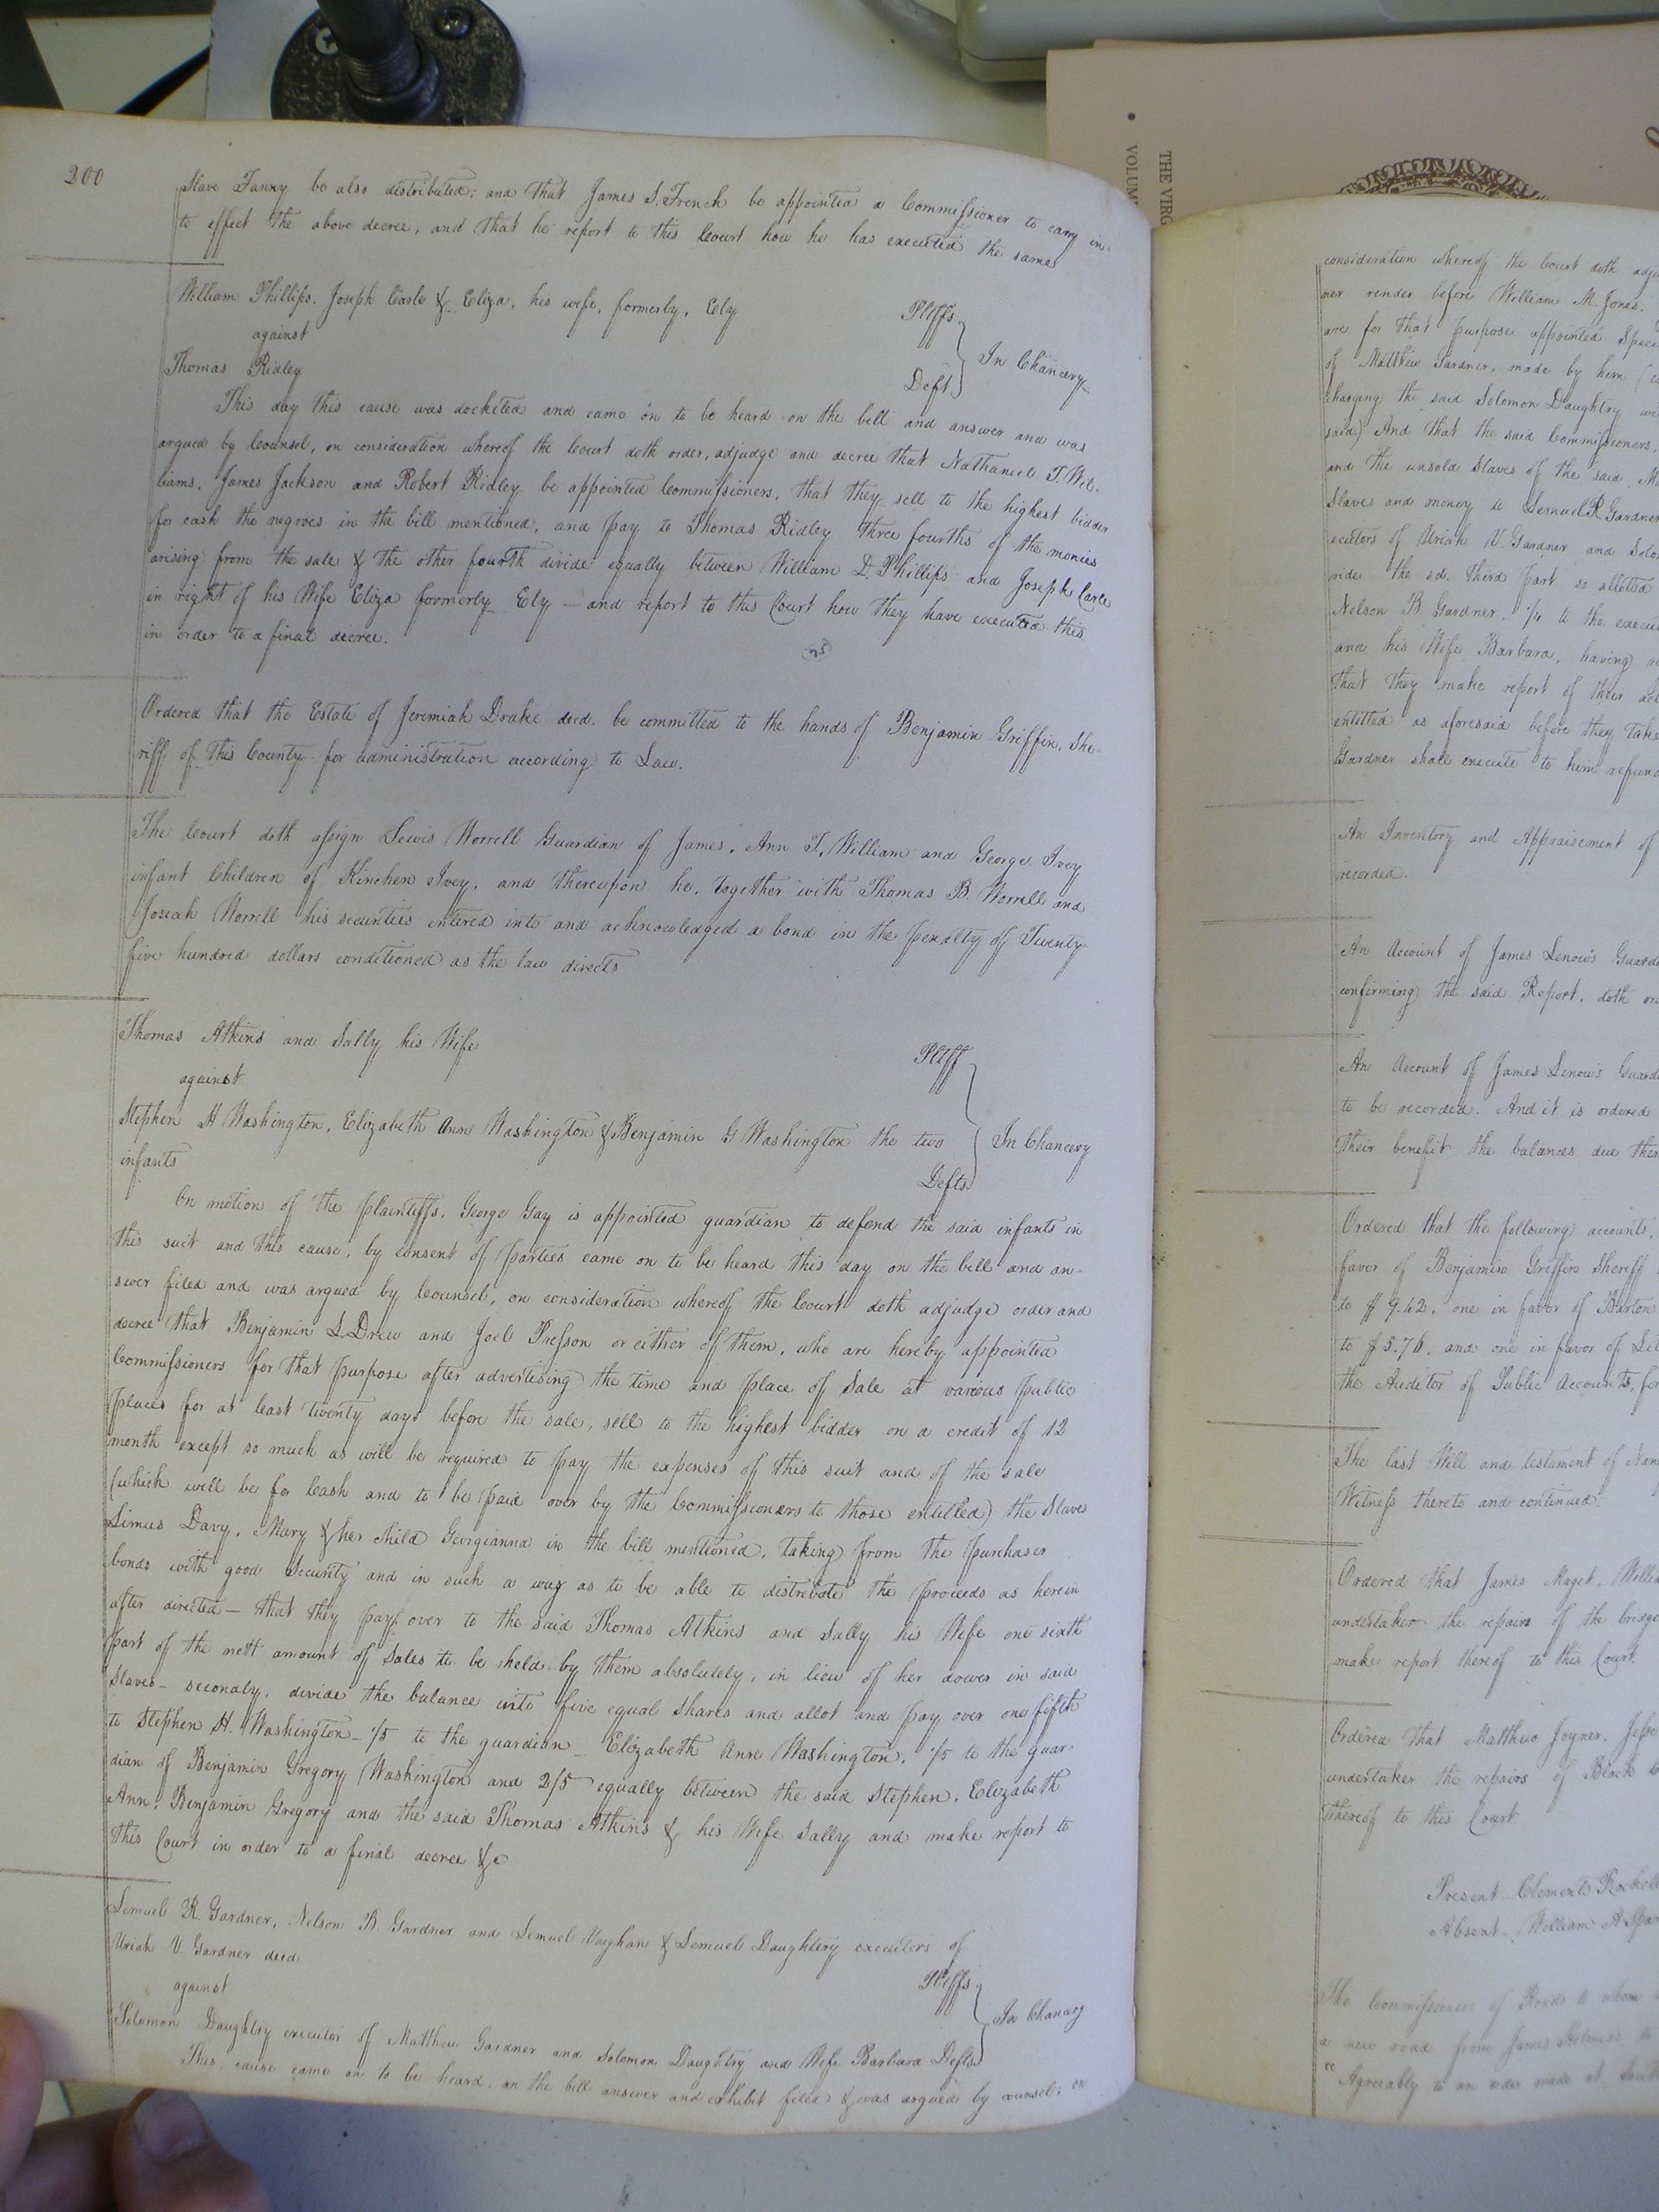 200
Slave Fanny be also distributed; and that James S. French be appointed a Commissioner to carry in-
to effect the above decree, and that he report to this Court how he has executed the same
William Phillips. Joseph Carle & Eliza, his wife, formerly, Ely Pltffs
against
In Chancery
Thomas Ridley Deft
This day this cause was docketed and came on to be heard on the bill and answer and was
argued by Counsel, on consideration whereof the Court doth order, adjudge and decree that Nathaniel T. Wil-
liams, James Jackson and Robert Ridley be appointed Commissioners, that they sell to the highest bidder
for cash the negroes in the bill mentioned, and pay to Thomas Ridley three fourths of the monies
arising from the sale & the other fourth divide equally between William D. Phillips and Joseph Carle
in right of his Wife Eliza formerly Ely — and report to this Court how they have executed this
in order to a final decree.
Ordered that the Estate of Jeremiah Drake decd. be committed to the hands of Benjamin Griffin, She-
riff of this County for administration according to Law.
The Court doth assign Lewis Worrell Guardian of James, Ann T, William and George Ivey
infant Children of Kinchen Ivey, and thereupon he, together with Thomas B. Worrell and
Josiah Worrell his securities entered into and acknowledged a bond in the penalty of Twenty
five hundred dollars conditioned as the law directs
Thomas Atkins and Sally his Wife Pltff
against
Stephen H Washington, Elizabeth Ann Washington & Benjamin G Washington the two
In Chancery
infants Defts
On motion of the plaintiffs, George Gay is appointed guardian to defend the said infants in
this suit and this cause, by consent of parties came on to be heard this day on the bill and an-
swer filed and was argued by Counsel, on consideration whereof the Court doth adjudge order and
decree that Benjamin S. Drew and Joel Presson or either of them, who are hereby appointed
Commissioners for that purpose after advertising the time and place of Sale at various public
places for at least twenty days before the sale, sell to the highest bidder on a credit of 12
month except so much as will be required to pay the expenses of this suit and of the sale
(which will be for Cash and to be paid over by the Commissioners to those entitled) the Slaves
Davy, Mary & her child Georgianna in the bill mentioned, taking from the purchaser
bonds with good Security and in such a way as to be able to distribute the proceeds as herein
after directed — that they pay over to the said Thomas Atkins and Sally his Wife one sixth
part of the nett amount of Sales to be held by them absolutely, in lieu of her dower in said
Slaves — secondly, divide the balance into five equal shares and allot and pay over one fifth
to Stephen H. Washington — 1/5 to the guardian Elizabeth Ann Washington, 1/5 to the guar-
dian of Benjamin Gregory Washington and 2/5 equally between the said Stephen, Elizabeth
Ann, Benjamin Gregory and the said Thomas Atkins & his Wife Sally and make report to
this Court in order to a final decree &c
Lemuel R. Gardner, Nelson B. Gardner and Lemuel Vaughan & Lemuel Daughtry executors of
Uriah V. Gardner decd Pltffs
against
In Chancery
Solomon Daughtry executor of Matthew Gardner and Solomon Daughtry and Wife Barbara Defts
This cause came on to be heard on the bill answer and exhibit filed & was argued by counsel, on
THE VIRG
consideration whereof the Court doth
ner render before William M. Jones,
are for that purpose appointed
of Matthew Gardner, made by him
charging the said Solomon Daughtry
said) And that the said Commissioners,
and the unsold Slaves of the said
Slaves and money to Lemuel R Gardner
ecutors of Uriah V. Gardner and
vide the sd. third part so allotted
Nelson B. Gardner, 1/4 to the
and his Wife Barbara, having
that they make report of their
entitled as aforesaid before they take
Gardner shall execute to him
An Inventory and Appraisement of
recorded.
An Account of James Lenow's
confirming the said Report, doth
An Account of James Lenow's
to be recorded. And it is ordered
their benefit the balances due
Ordered that the following accounts,
favor of Benjamin Griffin Sheriff
to $ 9.42, one in favor of Barton
to $ 5.76, and one in favor of
the Auditor of Public Accounts,
The last Will and testament of
Witness thereto and continued.
Ordered that James Maget,
undertaker the repairs of the bridge
make report thereof to this Court.
Ordered that Matthew Joyner,
undertaker the repairs of
thereof to this Court
Present Clements
Absent William A
The Commissioners of Roads to
a new road from James to
"Agreeably to an order made at